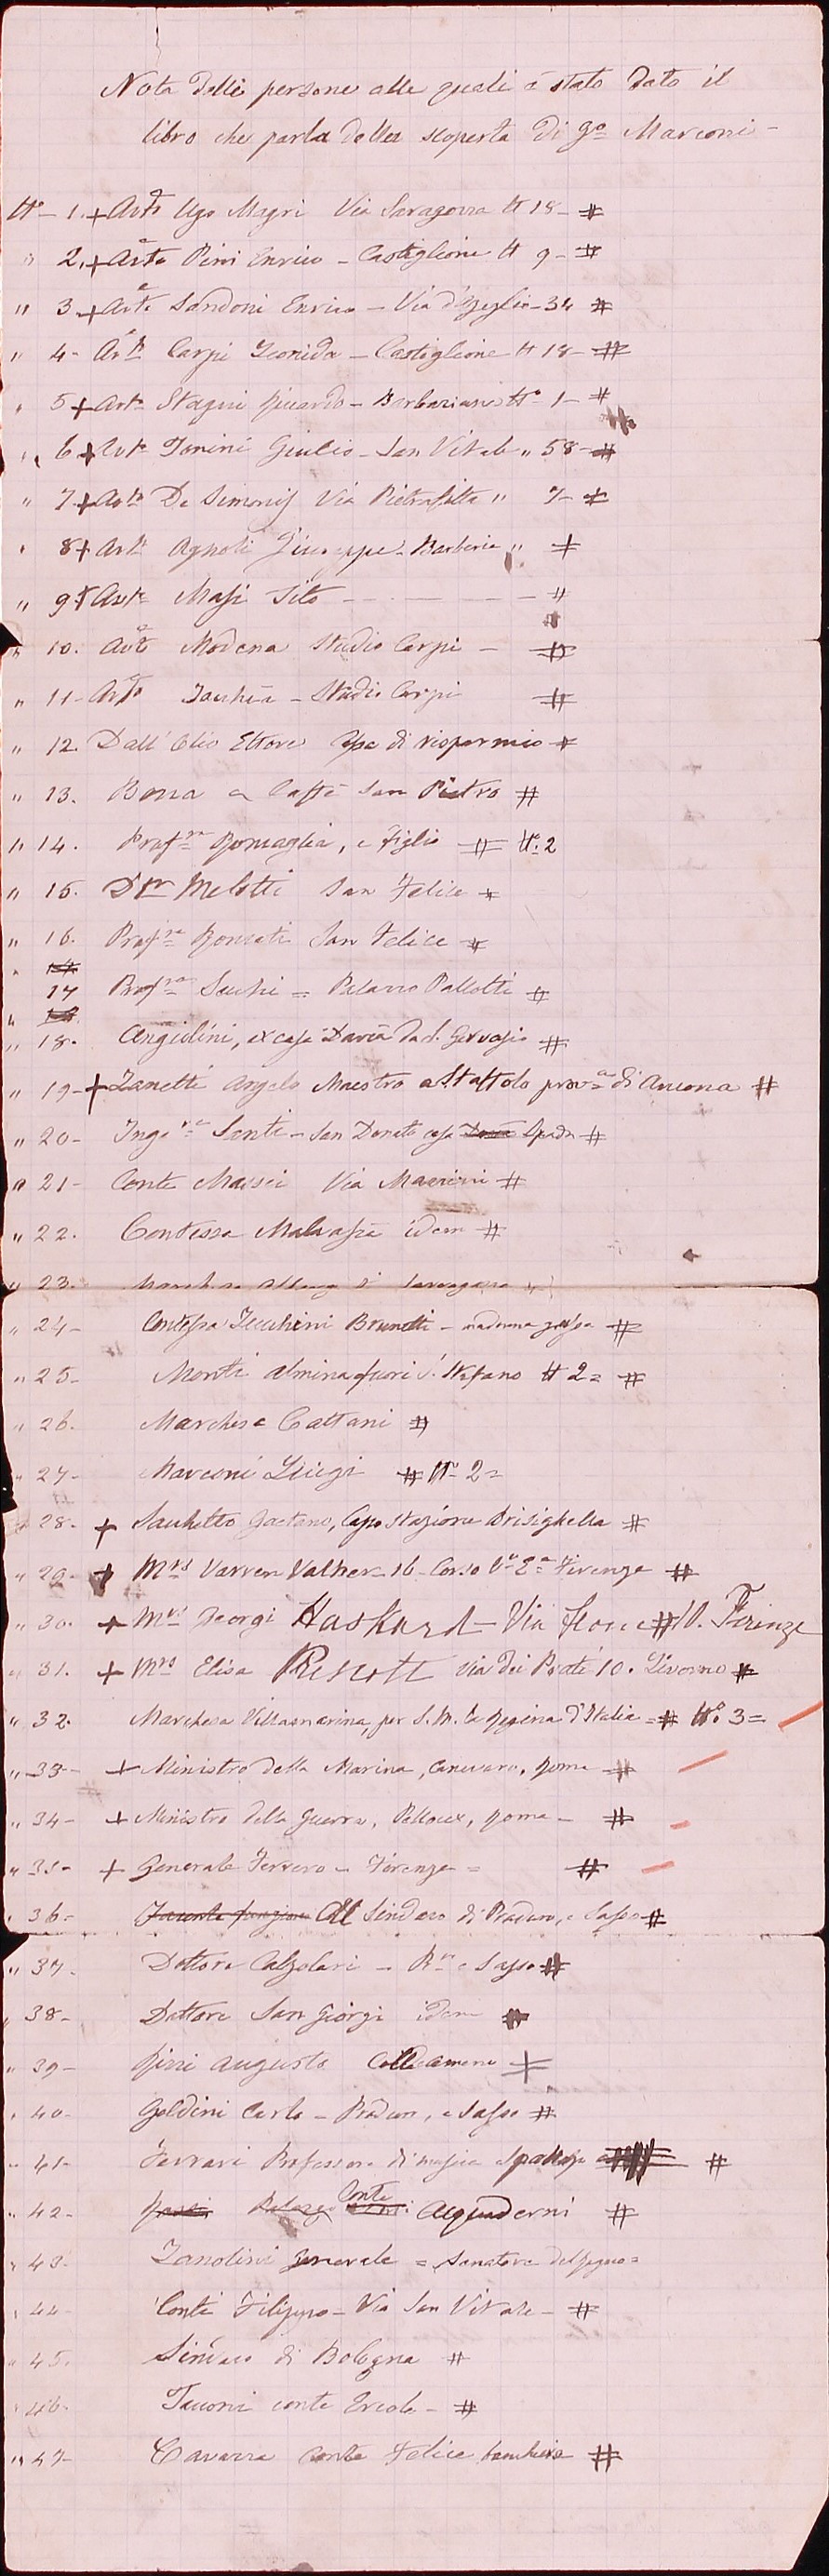 Nota delle persone alle quali è stato dato il
libro che parla della scoperta di Go Marconi -
No - 1. + Avto Ugo Magri Via Saragozza N 18 - #
" 2. + Avto Pini Enrico - Castiglione N 9 - #
" 3 - + Avto Sandoni Enrico - Via d'Azeglio - 34 #
" 4 - Avto Carpi Leonida - Castiglione N 18 - #
" 5 + Avto Stagni Riccardo - Barbaziana No 1 - #
" 6 + Avto Tonini Giulio - San Vitale " 58 - #
" 7 + Avto De Simonis Via Pietrafitta " 7 - #
" 8 + Avto Agnoli Giuseppe - Barberia " #
" 9 + Avto Masi Tito - - - - #
" 10. Avto Modena Studio Carpi - #
" 11 - Avto Studio Carpi #
" 12. Dall'Olio Ettore Cassa di risparmio #
" 13. Caffè San Pietro #
" 14. Profre Romaglia, e Figlio # No. 2
" 15. Dtr Melotti San Felice #
" 16. Profre Bonsati San Felice #
" 17 Profre = Palazzo Pallotti #
" 18. Angiolini, ex casa #
" 19 - + Zanetti Angelo Maestro a Staffolo prova di Ancona #
" 20 - Ingre Santi - San Donato casa Spada #
" 21 - Conte Massei Via Mazzini #
" 22. Contessa Malvasia idem #
" 23.
" 24 - Contessa Brunetti - #
" 25 - Monti Almina fuori S. Stefano N 2 = #
" 26. Marchese Cattani #
" 27 - Marconi Luigi # No 2 =
" 28 - + Gaetano, Capo Stazione Brisighella #
" 29 - + Mrs Varren Valher - 16 - Corso Vo Ele Firenze #
" 30 - + Mrs Georgi Haskard - Via # 10. Firenze
" 31. + Mrs Elisa Prescott via dei Prati 10. Livorno #
" 32. Marchesa Villamarina, per S. M. la Regina d'Italia = # No. 3 =
" 33 - + Ministro della Marina, Canevaro, Roma - #
" 34 - + Ministro della Guerra, Pelloux, Roma - #
" 35 - + Generale Ferrero - Firenze = #
" 36 - Al Sindaco di Praduro, e Sasso #
" 37 - Dottore Calzolari - Pro e Sasso #
" 38 - Dottore San Giorgi idem #
" 39 - Rizzi Augusto Colleameno #
" 40 - Goldini Carlo - Praduro, e Sasso #
" 41 - Ferrari Professore di musica a #
" 42 - Conte Acquaderni #
" 43 - Zanolini generale = Senatore del Regno =
" 44 - Conti Filippo - Via San Vitale - #
" 45. Sindaco di Bologna #
" 46. Tacconi conte Ercole - #
" 47 - Cavazza Conte Felice banchiere #